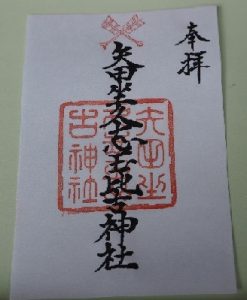 奉拝
矢田坐久志玉比古神社
矢田坐
古神社